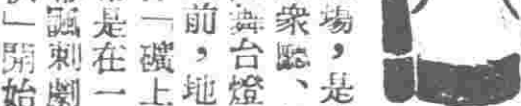 場，是
衆廳、
舞台燈
前，地
「礦上
是在一
諷刺劇
」開始